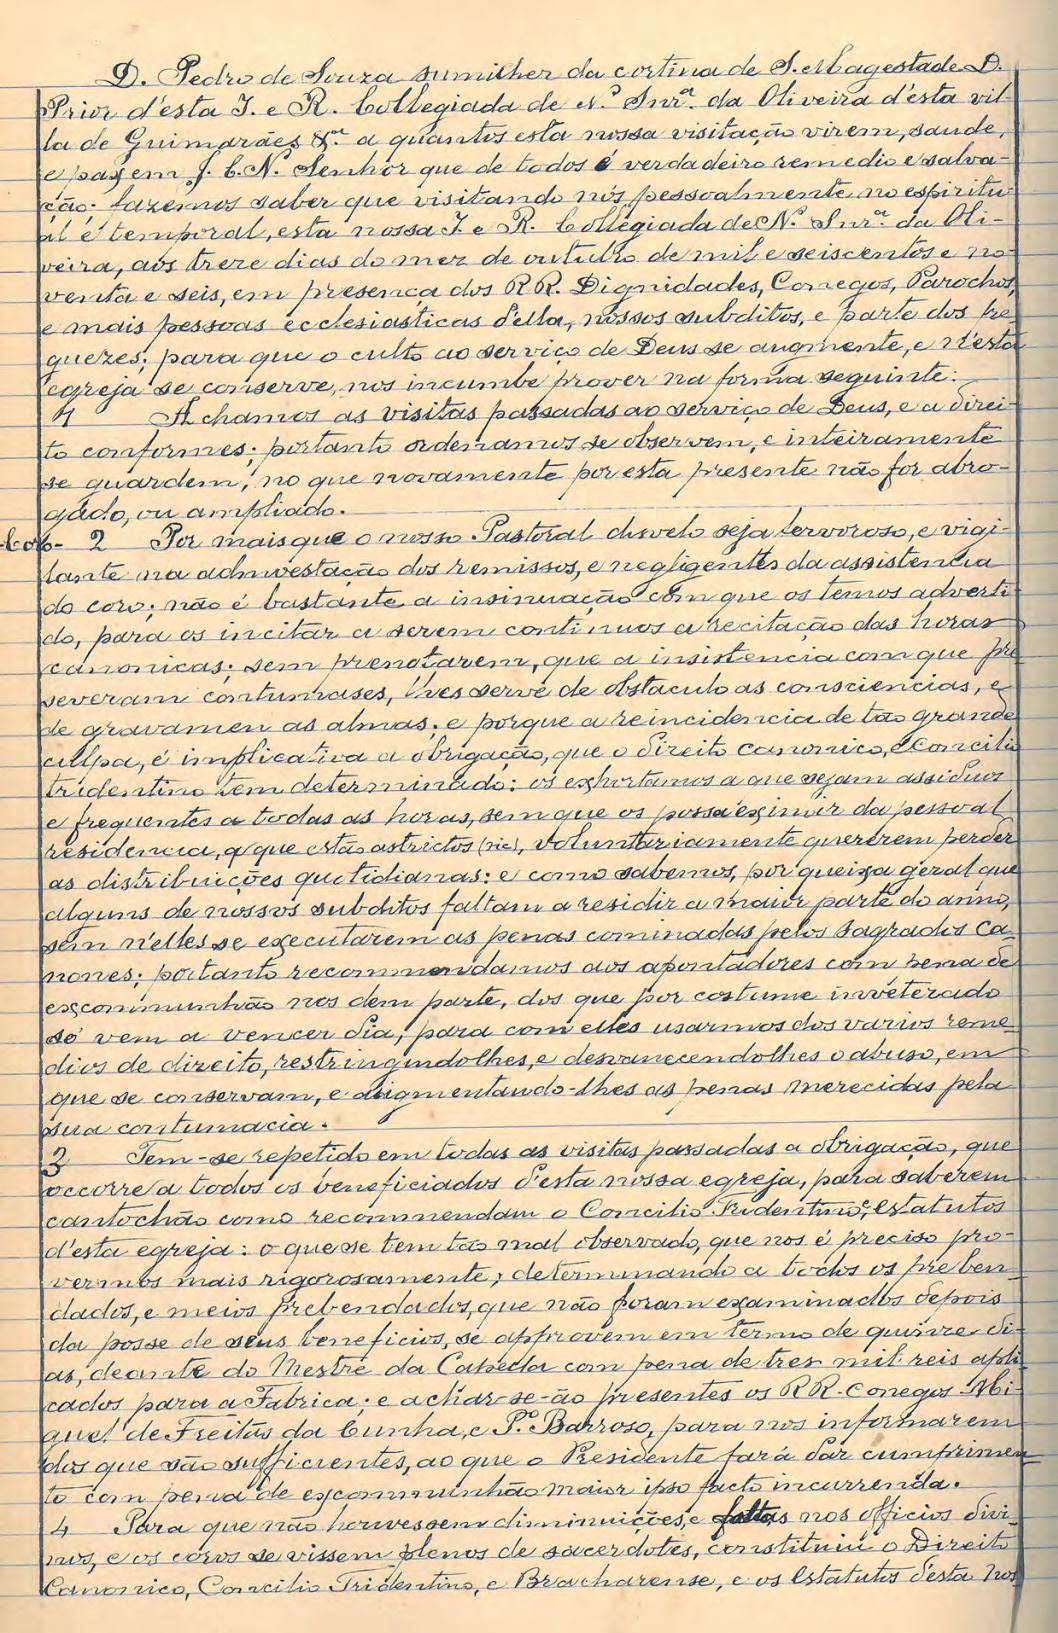 D. Pedro de Souza sumilher da cortina de S. Magestade D.
Prior d'esta I. e R. Collegiada de N.ª Snrª. da Oliveira d'esta vil-
la de Guimarães &ª a quantos esta nossa visitação virem, saude,
e paz em J. C. N. Senhor que de todos é verdadeiro remedio e salva-
ção: fazemos saber que visitando nós pessoalmente no espiritu-
al e temporal, esta nossa I. e R. Collegiada de N.ª Snrª. da Oli-
veira, aos treze dias do mez de outubro de mil e seiscentos e no-
venta e seis, em presença dos RR. Dignidades, Conegos, Parochos,
e mais pessoas ecclesiasticas d'ella, nossos subditos, e parte dos fre
guezes; para que o culto ao serviço de Deus se augmente, e n'esta
egreja se conserve, nos incumbe prover na forma seguinte:
1 Achamos as visitas passadas ao serviço de Deus, e a direi-
to conformes; portanto ordenamos se observem, e inteiramente
se guardem, no que novamente por esta presente não for abro-
gado, ou ampliado.
-Coro- 2 Por mais que o nosso Pastoral disvelo seja fervoroso, e vigi-
lante na admoestação dos remissos, e negligentes da assistencia
do coro; não é bastante a insinuação com que os temos adverti
do, para os incitar a serem continuos a recitação das horas
canonicas; sem prenotarem, que a insistencia com que pre
severam contumases, lhes serve de obstaculo as consciencias, e
de gravamen as almas; e porque a reincidencia de tão grande
culpa, é implicativa a obrigação, que o direito canonico, e Concilio
tridentino tem determinado: os exhortamos a que sejam assiduos
e frequentes a todas as horas, sem que os possa eximir da pessoal
residencia, a que estão astrictos (sic), voluntariamente quererem perder
as distribuições quotidianas: e como sabemos, por queixa geral que
alguns de nossos subditos faltam a residir a maior parte do anno,
sem n'elles se executarem as penas cominadas pelos sagrados ca-
nones; portanto recommendamos aos apontadores com pena de
excommunhão nos dem parte, dos que por costume inveterado
só vem a vencer dia, para com elles usarmos dos varios reme-
dios de direito, restringindolhes, e desvanecendolhes o abuso, em
que se conservam, e augmentando-lhes as penas merecidas pela
sua contumacia.
3 Tem-se repetido em todas as visitas passadas a obrigação, que
occorre a todos os beneficiados d'esta nossa egreja, para saberem
cantochão como recommendam o Concilio Tridentino, e estatutos
d'esta egreja: o que se tem tão mal observado, que nos é preciso pro-
vermos mais rigorosamente, determinando a todos os preben-
dados, e meios prebendados, que não foram examinados depois
da posse de seus beneficios, se approvem em termo de quinze di-
as, deante do Mestre da Capella com pena de tres mil reis apli
cados para a Fabrica; e achar-se-ão presentes os RR. Conegos Mi-
guel de Freitas da Cunha, e P.º Barroso, para nos informarem
dos que são sufficientes, ao que o Presidente fará dar cumprimen
to com pena de excommunhão maior ipso facto incurrenda.
4 Para que não houvessem diminuições, e faltas nos officios divi-
nos, e os coros se vissem plenos de sacerdotes, constituiu o Direito
Canonico, Concilio Tridentino, e Bracharense, e os Estatutos d'esta nos